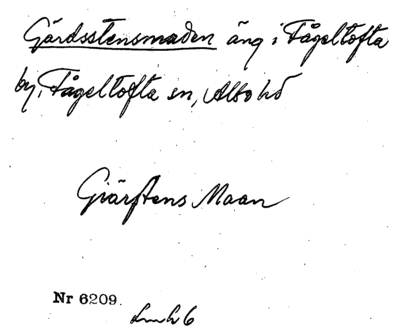 Gärdsstensmaden äng i Fågeltofta
by, Fågeltofta sn, Albo hd
Giärstens Maan
Nr 6209.
Lmh 6